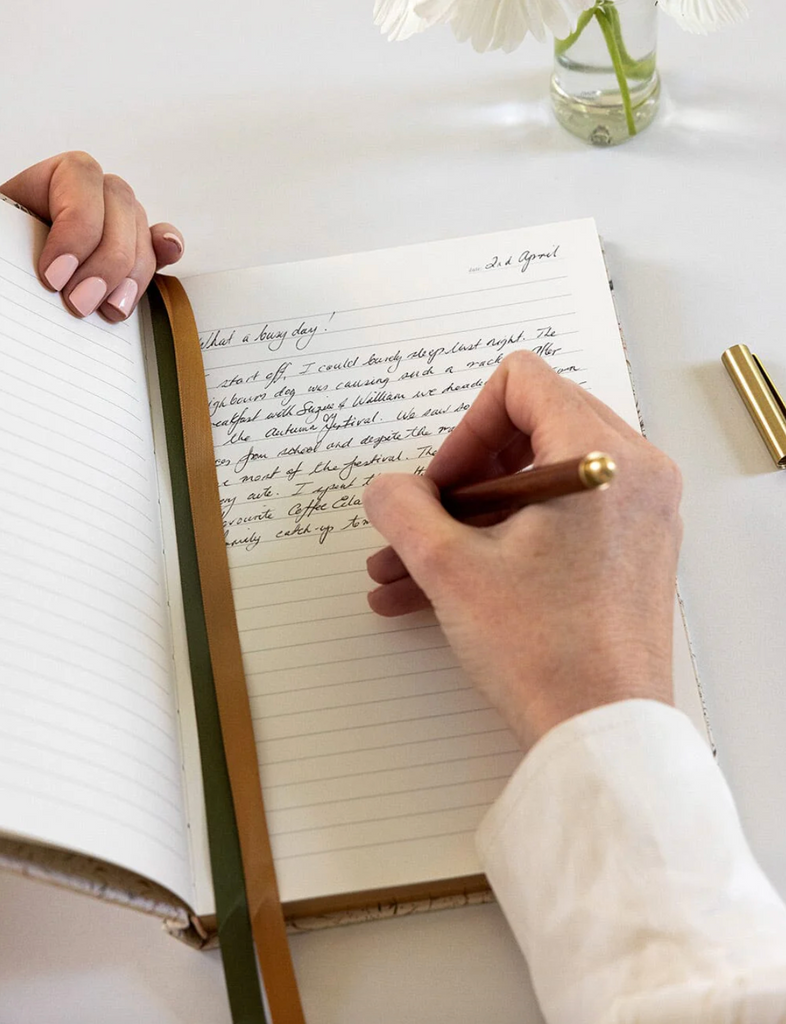 Date: 2nd April
What a busy day!
start off, I could barely sleep last night. The
neighbours dog was causing such a After
breakfast with Suzie & William we
the autumn festival. We saw
from school and despite the
most of the festival. The
cute. I spent
favourite Coffee
family catch-up